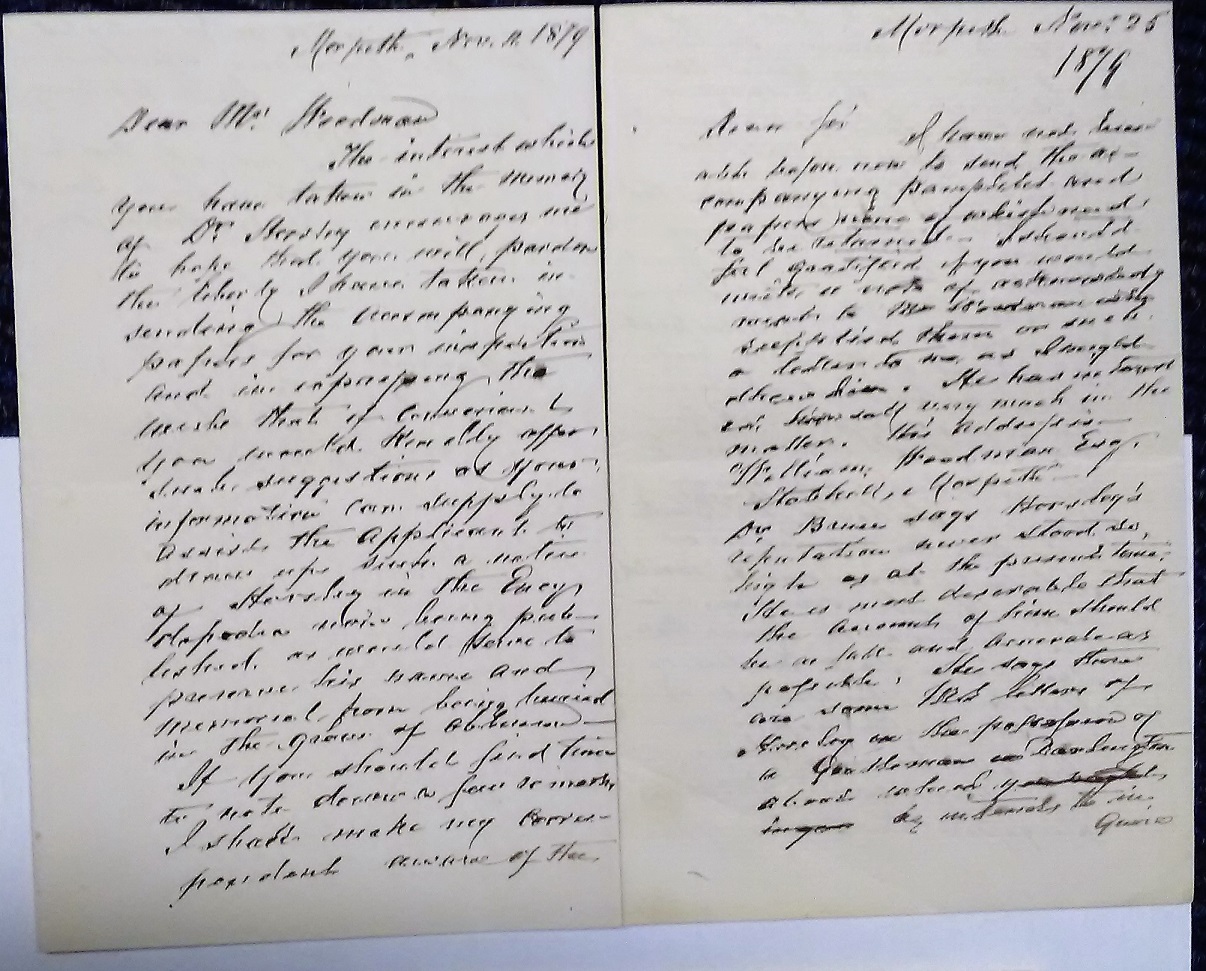 Morpeth, Nov. 11. 1879
Dear Mr. Woodman
The interest which
you have taken in the memory
of Dr. Horsley encourages me
to hope that you will pardon
the liberty I have taken in
sending the accompanying
papers for your inspection
and in expressing the
wish that if convenient
you would kindly offer
such suggestions as your
information can supply to
assist the applicant to
draw up such a notice
of Horsley in the Ency
clopædia now being pub-
lished as would serve to
preserve his name and
memorial from being buried
in the grave of oblivion
If you should find time
to note down a few remarks
I shall make my corres-
pondent aware of the
Morpeth Novr. 25
1879
Dear Sir I have not been
able before now to send the ac-
companying pamphlet and
papers none of which need
to be returned. I should
feel gratified if you would
write a note of acknowledg
ment to Mr Woodman who
supplied them or such
a letter to me as I might
show him. He has interest
ed himself very much in the
matter. His address is
William Woodman Esq.
Stobhill, Morpeth
Dr. Bruce says Horsley's
reputation never stood so
high as at the present time.
It is most desirable that
the account of him should
be as full and accurate as
possible. He says there
are some MSS letters of
Horsley in the possession of
a Gentleman in Darlington
about which
he intends to in
quire